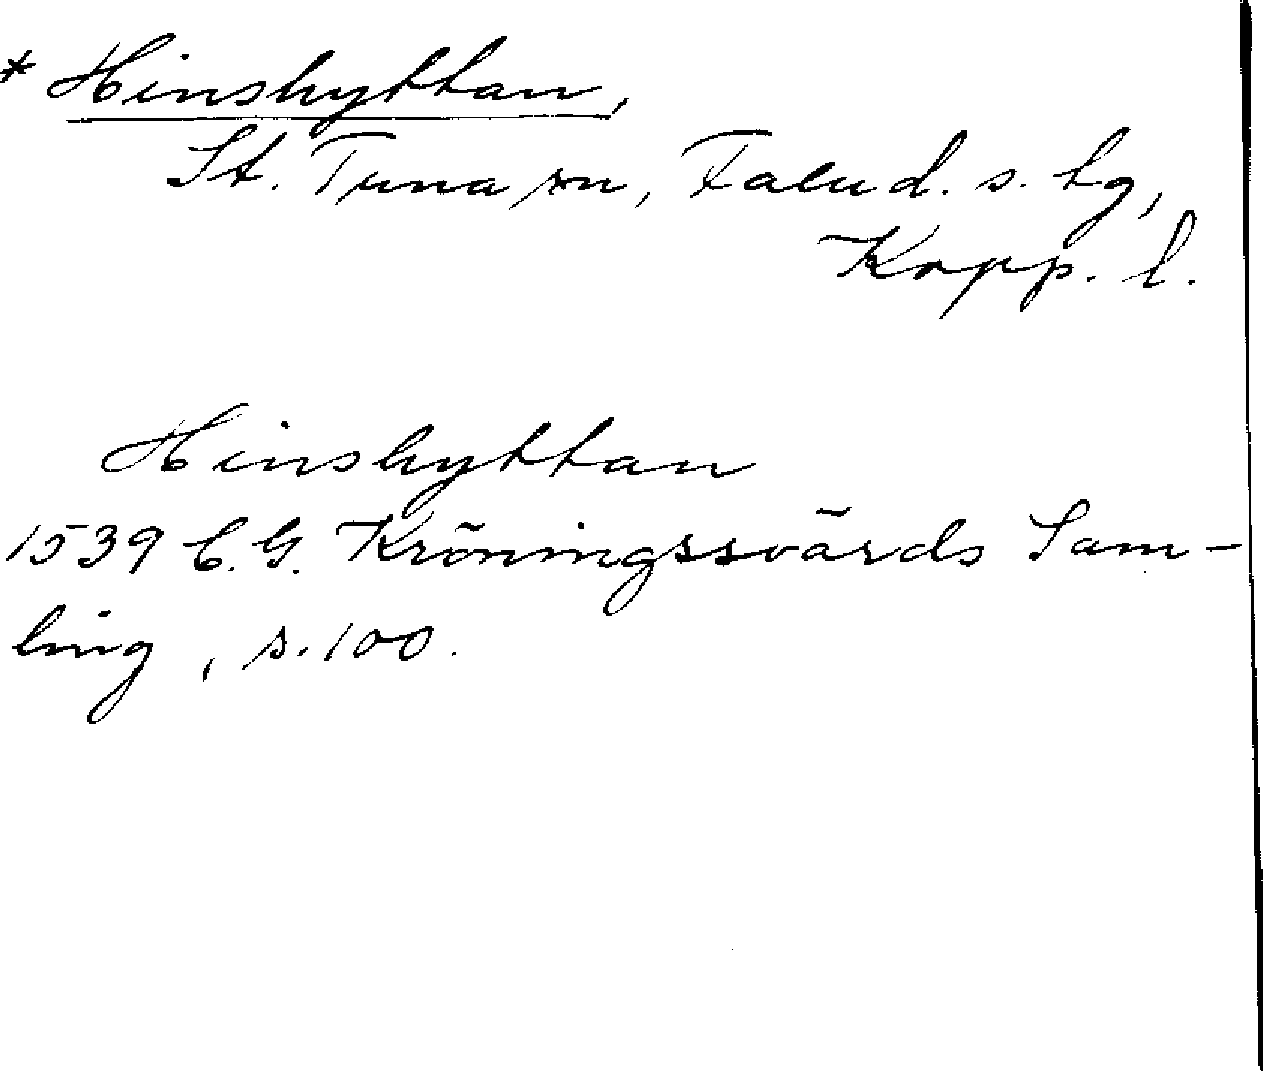 * Hinshyttan,
St. Tuna sn, Falu d. s. hg,
Kopp. l.
Hinshyttan
1539 C. G. Kröningssvärds Sam-
ling, s. 100.